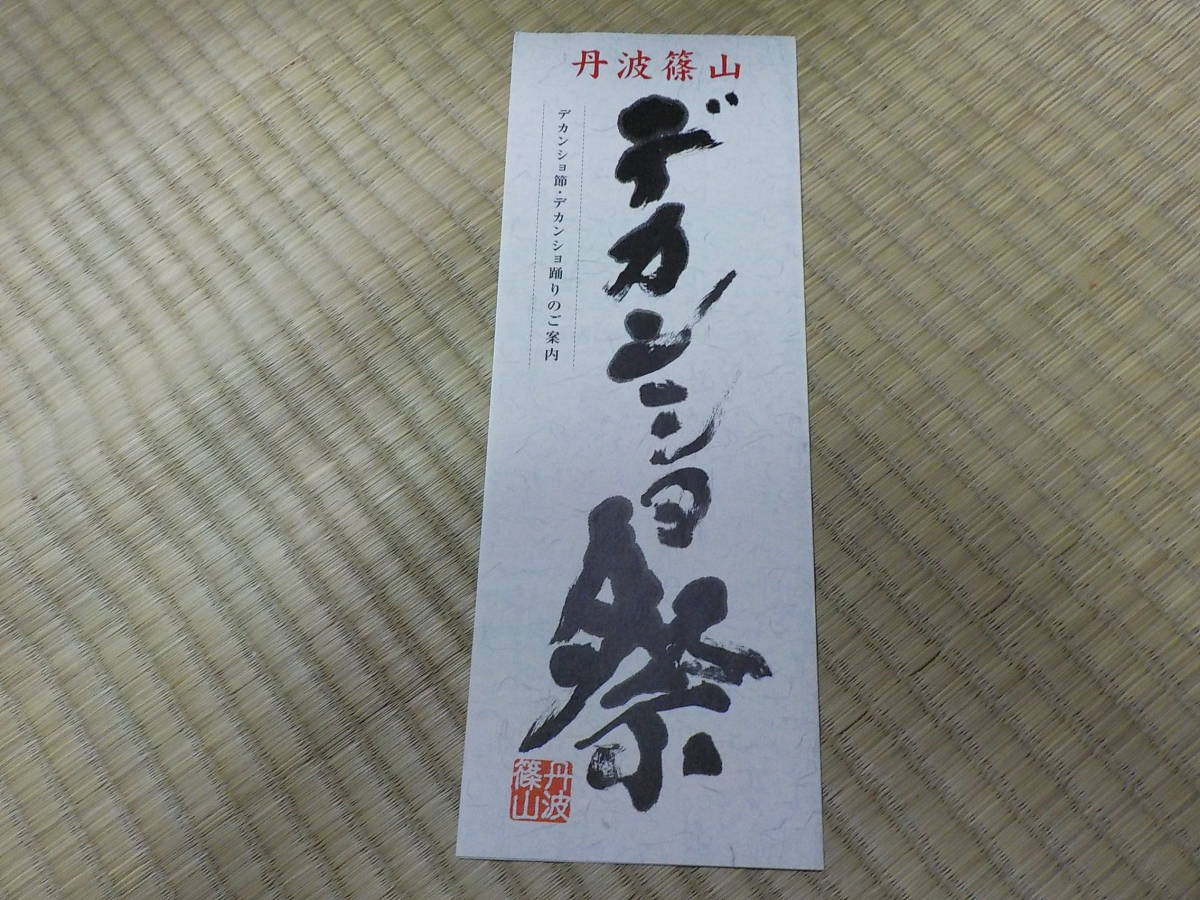 丹波篠山
デカンショ祭
デカンショ節・デカンショ踊りのご案内
丹波
篠山